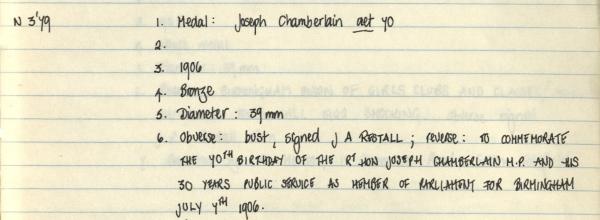 N 3'79 1. Medal: Joseph Chamberlain aet 70
2.
3. 1906
4. Bronze
5. Diameter: 39mm
6. Obverse: bust, signed J A RESTALL; reverse: TO COMMEMORATE
THE 70TH BIRTHDAY OF THE RT HON JOSEPH CHAMBERLAIN M.P. AND HIS
30 YEARS PUBLIC SERVICE AS MEMBER OF PARLIAMENT FOR BIRMINGHAM
JULY 7TH 1906.